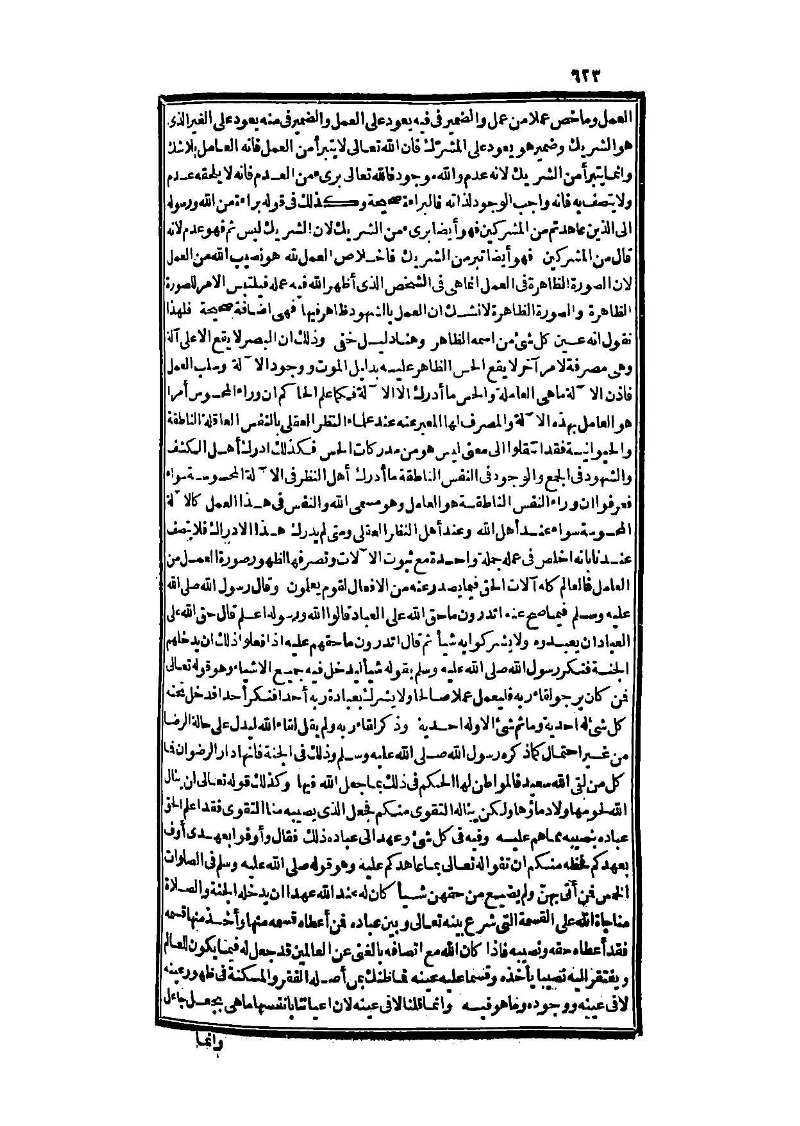 ٦٢٣
العمل وما خص عملا من عمل والضمير فى فيه يعود على العمل والضمير فى منه يعود على الغير الذى
هو الشريك وضمير هو يعود على المشرك فان الله تعالى لا يتبرأ من العمل فانه العامل بلا شك
وانما يتبرأ من الشريك لانه عدم والله وجود فالله تعالى برىء من العدم فانه لا يلحقه عدم
ولا يتصف به فانه واجب الوجود لذاته فالبراءة صحيحة وكذلك فى قوله براءة من الله ورسوله
الى الذين عاهدتم من المشركين فهو أيضا برىء من الشريك لان الشريك ليس ثم فهو عدم لانه
قال من المشركين فهو أيضا تبر من الشريك فاخلاص العمل لله هو نصيب الله من العمل
لان الصورة الظاهرة فى العمل انما هى فى الشخص الذى أظهر الله فيه عمله فيلتبس الامر للصورة
الظاهرة والصورة الظاهرة لا نشك ان العمل بالشهود ظاهر فيها فهى اضافة صحيحة فلهذا
نقول انه عين كل شئ من اسمه الظاهر وهنا دليل خفى وذلك ان البصر لا يقع الا على آلة
وهى مصرفة لامر آخر لا يقع الحس الظاهر عليه بدليل الموت ووجود الآلة وسلب العمل
فاذن الآلة ما هى العاملة والحس ما أدرك الا الآلة فكما علم الحاكم ان وراء المحسوس أمرا
هو العامل بهذه الآلة والمصرف لها المعبر عنه عند علماء النظر العقلى بالنفس العاقلة الناطقة
والحيوانية فقد انتقلوا الى معنى ليس هو من مدركات الحس فكذلك ادرك أهل الكشف
والشهود فى الجمع والوجود فى النفس الناطقة ما أدرك أهل النظر فى الآلة المحسوسة سواء
فعرفوا ان وراء النفس الناطقة هو العامل وهو مسمى الله والنفس فى هذا العمل كالآلة
المحسوسة سواء عند أهل الله وعند أهل النظر العقلى ومتى لم يدرك هذا الادراك فلا يتصف
عندنا بانه اخلص فى عمله جملة واحدة مع ثبوت الآلات وتصرفها لظهور صورة العمل من
العامل فالعالم كله آلات الحق فيما يصدر عنه من الافعال لقوم يعلمون وقال رسول الله صلى الله
عليه وسلم فيما صح عنه اتدرون ما حق الله على العباد قالوا الله ورسوله اعلم قال حق الله على
العباد ان يعبدوه ولا يشركوا به شيأ ثم قال اتدرون ما حقهم عليه اذا فعلوا ذلك ان يدخلهم
الجنة فنكر رسول الله صلى الله عليه وسلم بقوله شيأ ليدخل فيه جميع الاشياء وهو قوله تعالى
فمن كان يرجو لقاء ربه فليعمل عملا صالحا ولا يشرك بعبادة ربه أحدا فنكر أحدا فدخل تحته
كل شئ له احدية وما ثم شئ الا وله احدية وذكر لقاء ربه ولم يقل لقاء الله ليدل على حالة الرضا
من غير احتمال كما ذكره رسول الله صلى الله عليه وسلم وذلك فى الجنة فانها دار الرضوان فما
كل من لقى الله سعيد فالمواطن لها الحكم فى ذلك بما جعل الله فيها وكذلك قوله تعالى لن ينال
الله لحومها ولا دماؤها ولكن يناله التقوى منكم فجعل الذى يصيبه منا التقوى فقد اعلم الحق
عباده بنصيبه مما هم عليه وفيه فى كل شئ وعهد الى عباده ذلك فقال وأوفوا بعهدى أوف
بعهدكم فحظه منكم ان تفوا له تعالى بما عاهدكم عليه وهو قوله صلى الله عليه وسلم فى الصلوات
الخمس فمن أتى بهن ولم يضيع من حقهن شيأ كان له عند الله عهدا ان يدخله الجنة والصلاة
مناجاة الله على القسمة التى شرع بينه تعالى وبين عباده فمن أعطاه قسمه منها وأخذ منها قسمه
فقد أعطاه حقه ونصيبه فاذا كان الله مع اتصافه بالغنى عن العالمين قد جعل له فيما يكون للعالم
ويفتقر اليه نصيبا يأخذه وقسما عليه عينه فما ظنك بمن أصله الفقر والمسكنة فى ظهور عينه
لا فى عينه ووجوده وما هو فيه وانما قلنا لا فى عينه لان اعياننا بانفسها ما هى بجعل جاعل
وانما